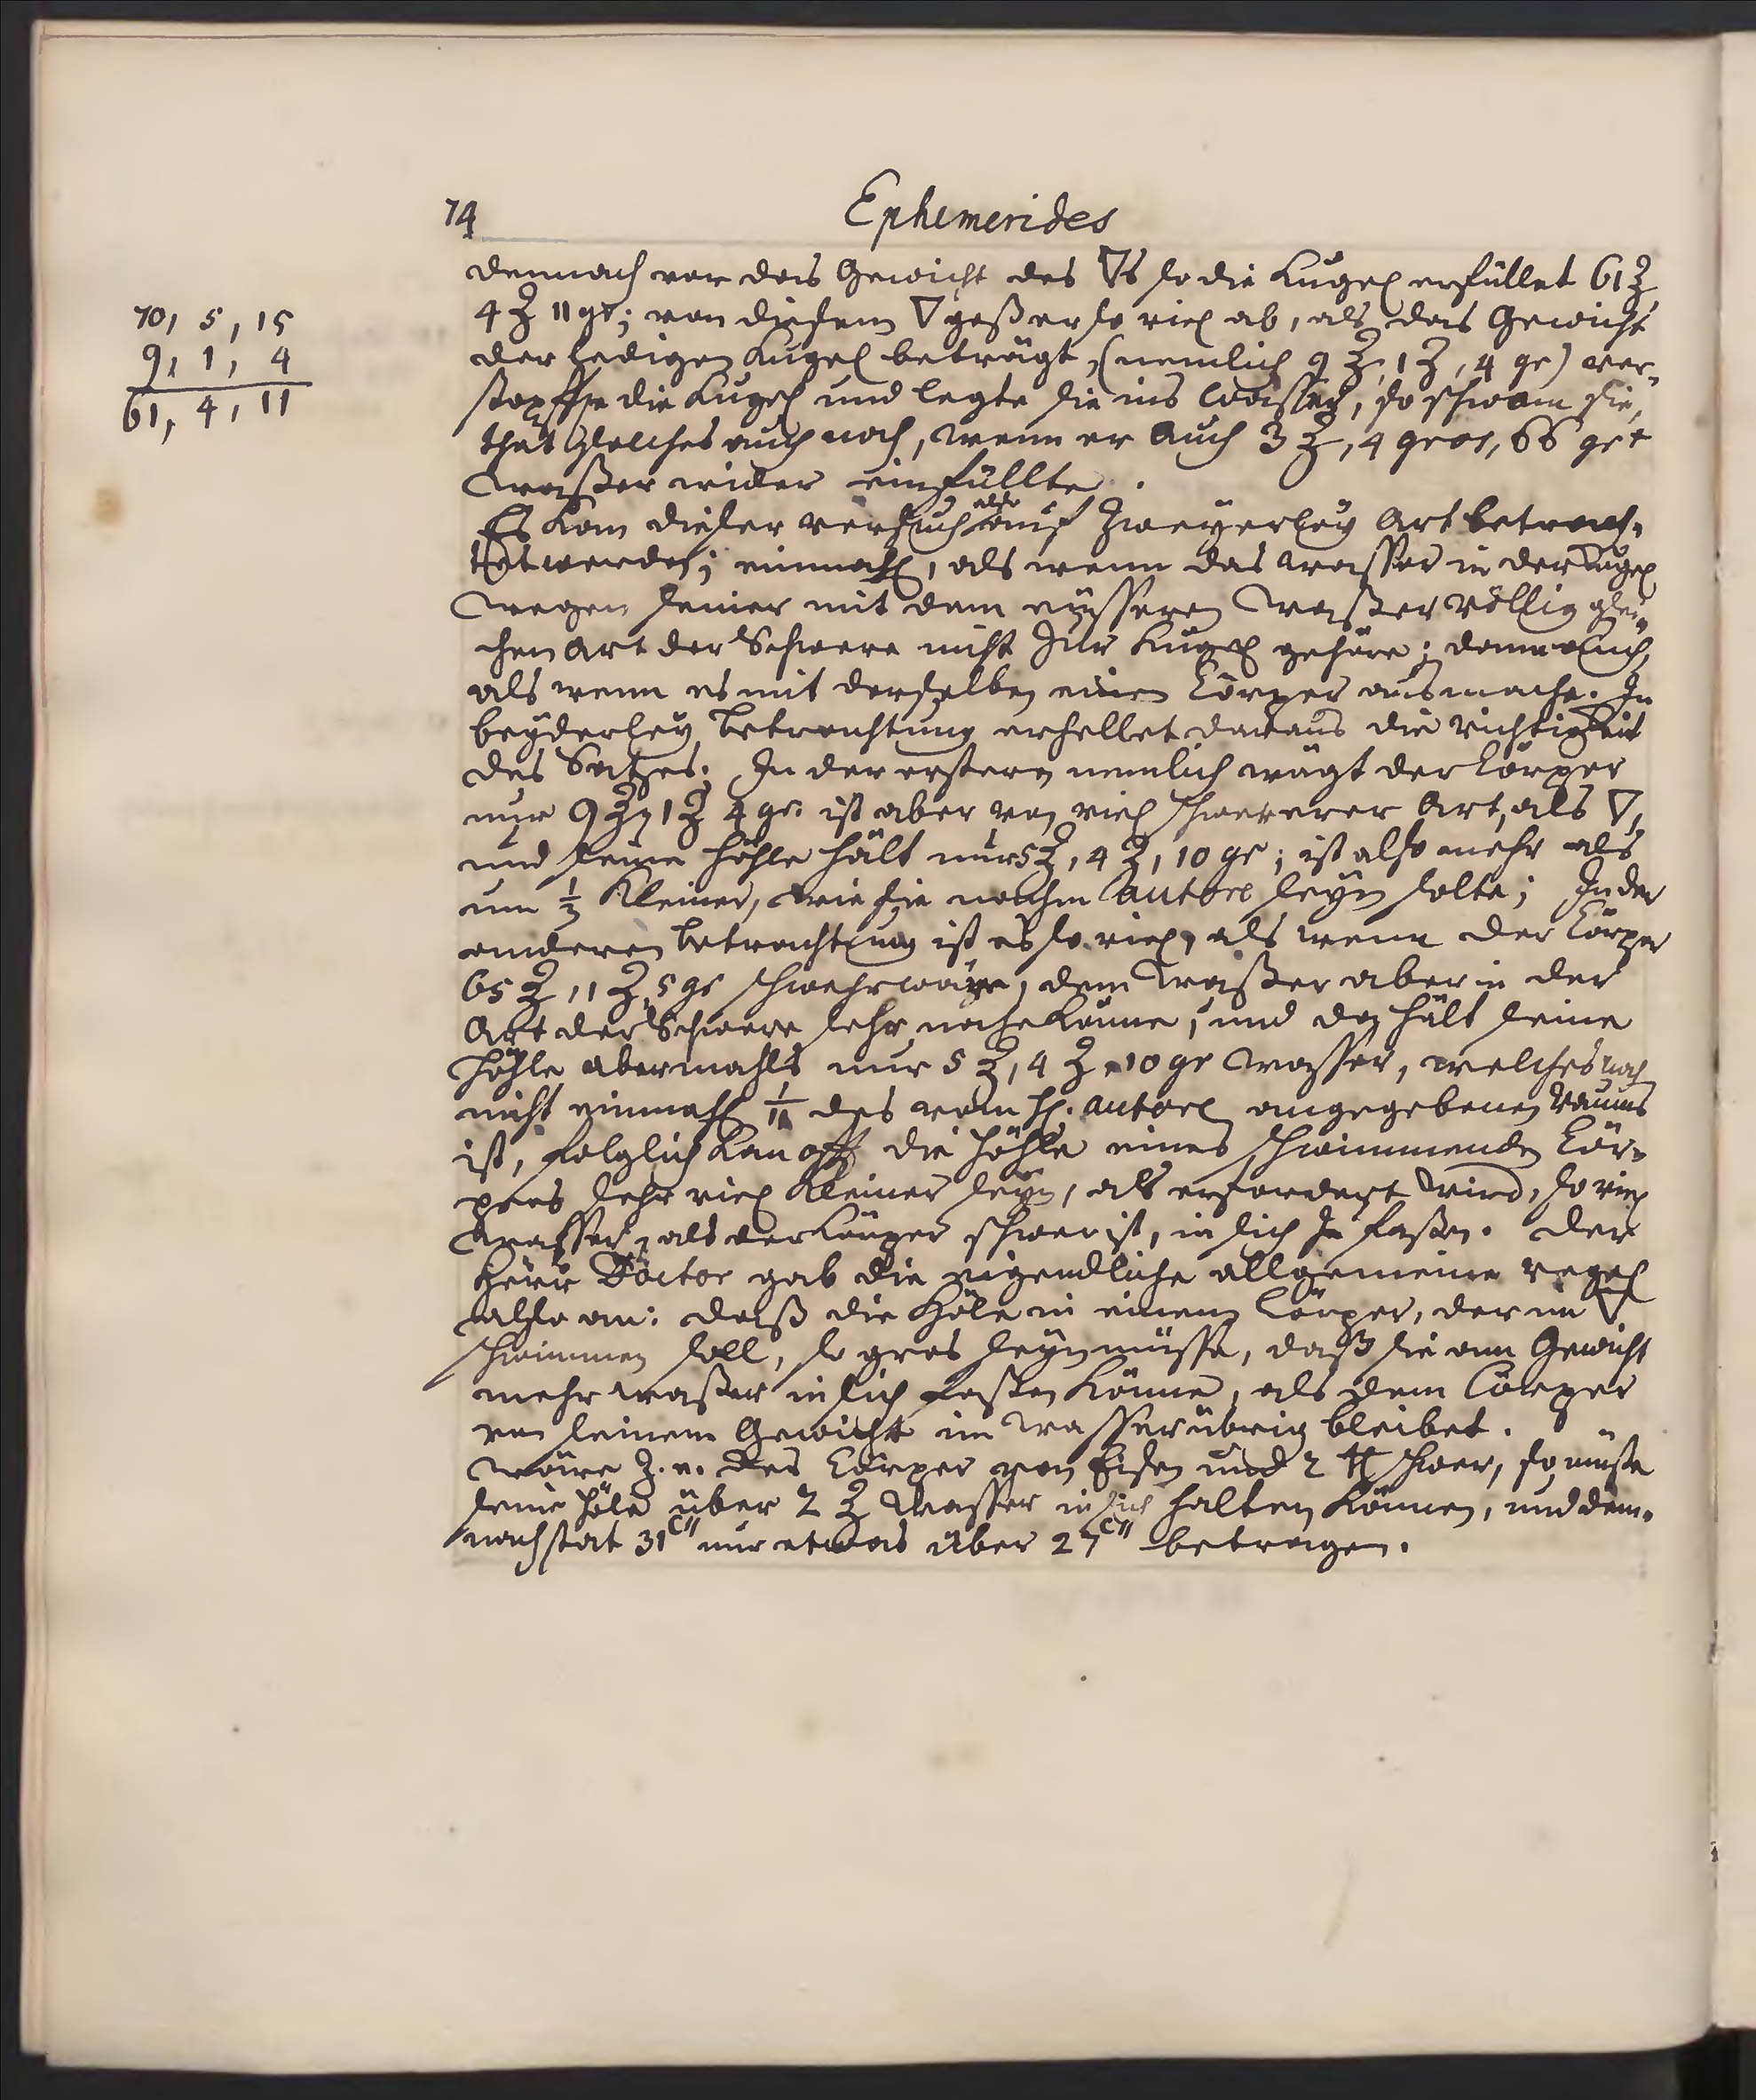 74
Ephemerides
70, 5, 15
9, 1, 4
61, 4, 11
demnach war das Gewicht des ▽s so die Kugel erfüllet 61 ℥
4 ʒ 11 gr; von diesem ▽ goß er so viel ab, als das Gewicht
der ledigen Kugel beträgt, (nemlich 9 ℥, 1 ʒ, 4 gr) ver-
stopffte die Kugel und legte sie ins Wasser, so schwam sie,
that solches auch noch, wenn er auch 3 ℥, 4 gros, 66 gr
Waßer wider einfüllte.
Es kan dieser versuch also auf zweyerley Art betrach-
tet werden; einmahl, als wenn das Wasser in der Kugel
wegen seiner mit dem eüsseren Waßer völlig glei-
chen Art der Schwere nicht zur Kugel gehöre; dann auch,
als wenn es mit derselben einen Cörper ausmache. In
beyderley betrachtung erhellet daraus die richtigkeit
des Satzes. In der erstern nemlich wägt der Cörper
nur 9 ℥, 1 ʒ 4 gr. ist aber von viel schwererer Art, als ▽,
und seine Höhle hält nur 5 ℥, 4 ʒ, 10 gr; ist also mehr als
um 1/3 kleiner, wie sie nachm autore seyn solte; In der
anderen betrachtung ist es so viel, als wenn der Cörper
65 ℥, 11 ʒ, 5 gr schwehr wäre, dem Waßer aber in der
Art der Schwere sehr nahe käme, und doch hält seine
Höhle abermahls nur 5 ℥, 4 ʒ, 10 gr Wasser, welches noch
nicht einmahl 1/11 des vom H. autore angegebenen Raums
ist, folglich kan offt die Höhle eines schwimmenden Cör-
pers sehr viel kleiner seyn, als erfordert wird, so viel
Wasser, als der Cörper schwer ist, in sich zu faßen. Der
Herr Doctor gab die eigendliche allgemeine regel
also an: daß die Höle in einem Cörper, der im ▽
schwimmen soll, so gros seyn müsse, daß sie am Gewicht
mehr waßer in sich faßen könne, als dem Cörper
von seinem Gewicht im Wasser übrig bleibet.
Wäre z. e. der Cörper von Eisen und 2 ℔ schwer, so müste
seine Höle über 2 ℥ Wasser in sich halten können, und dem-
nach stat 31 c" nur etwas über 27 c" betragen.